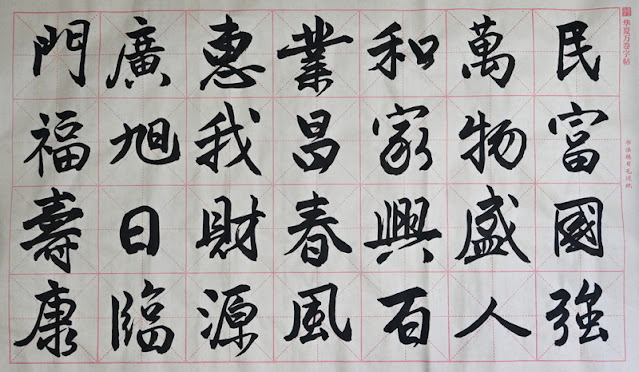 华夏万卷字帖
民富國強
萬物盛人
和家興百
業昌春風
惠我財源
廣旭日臨
門福壽康